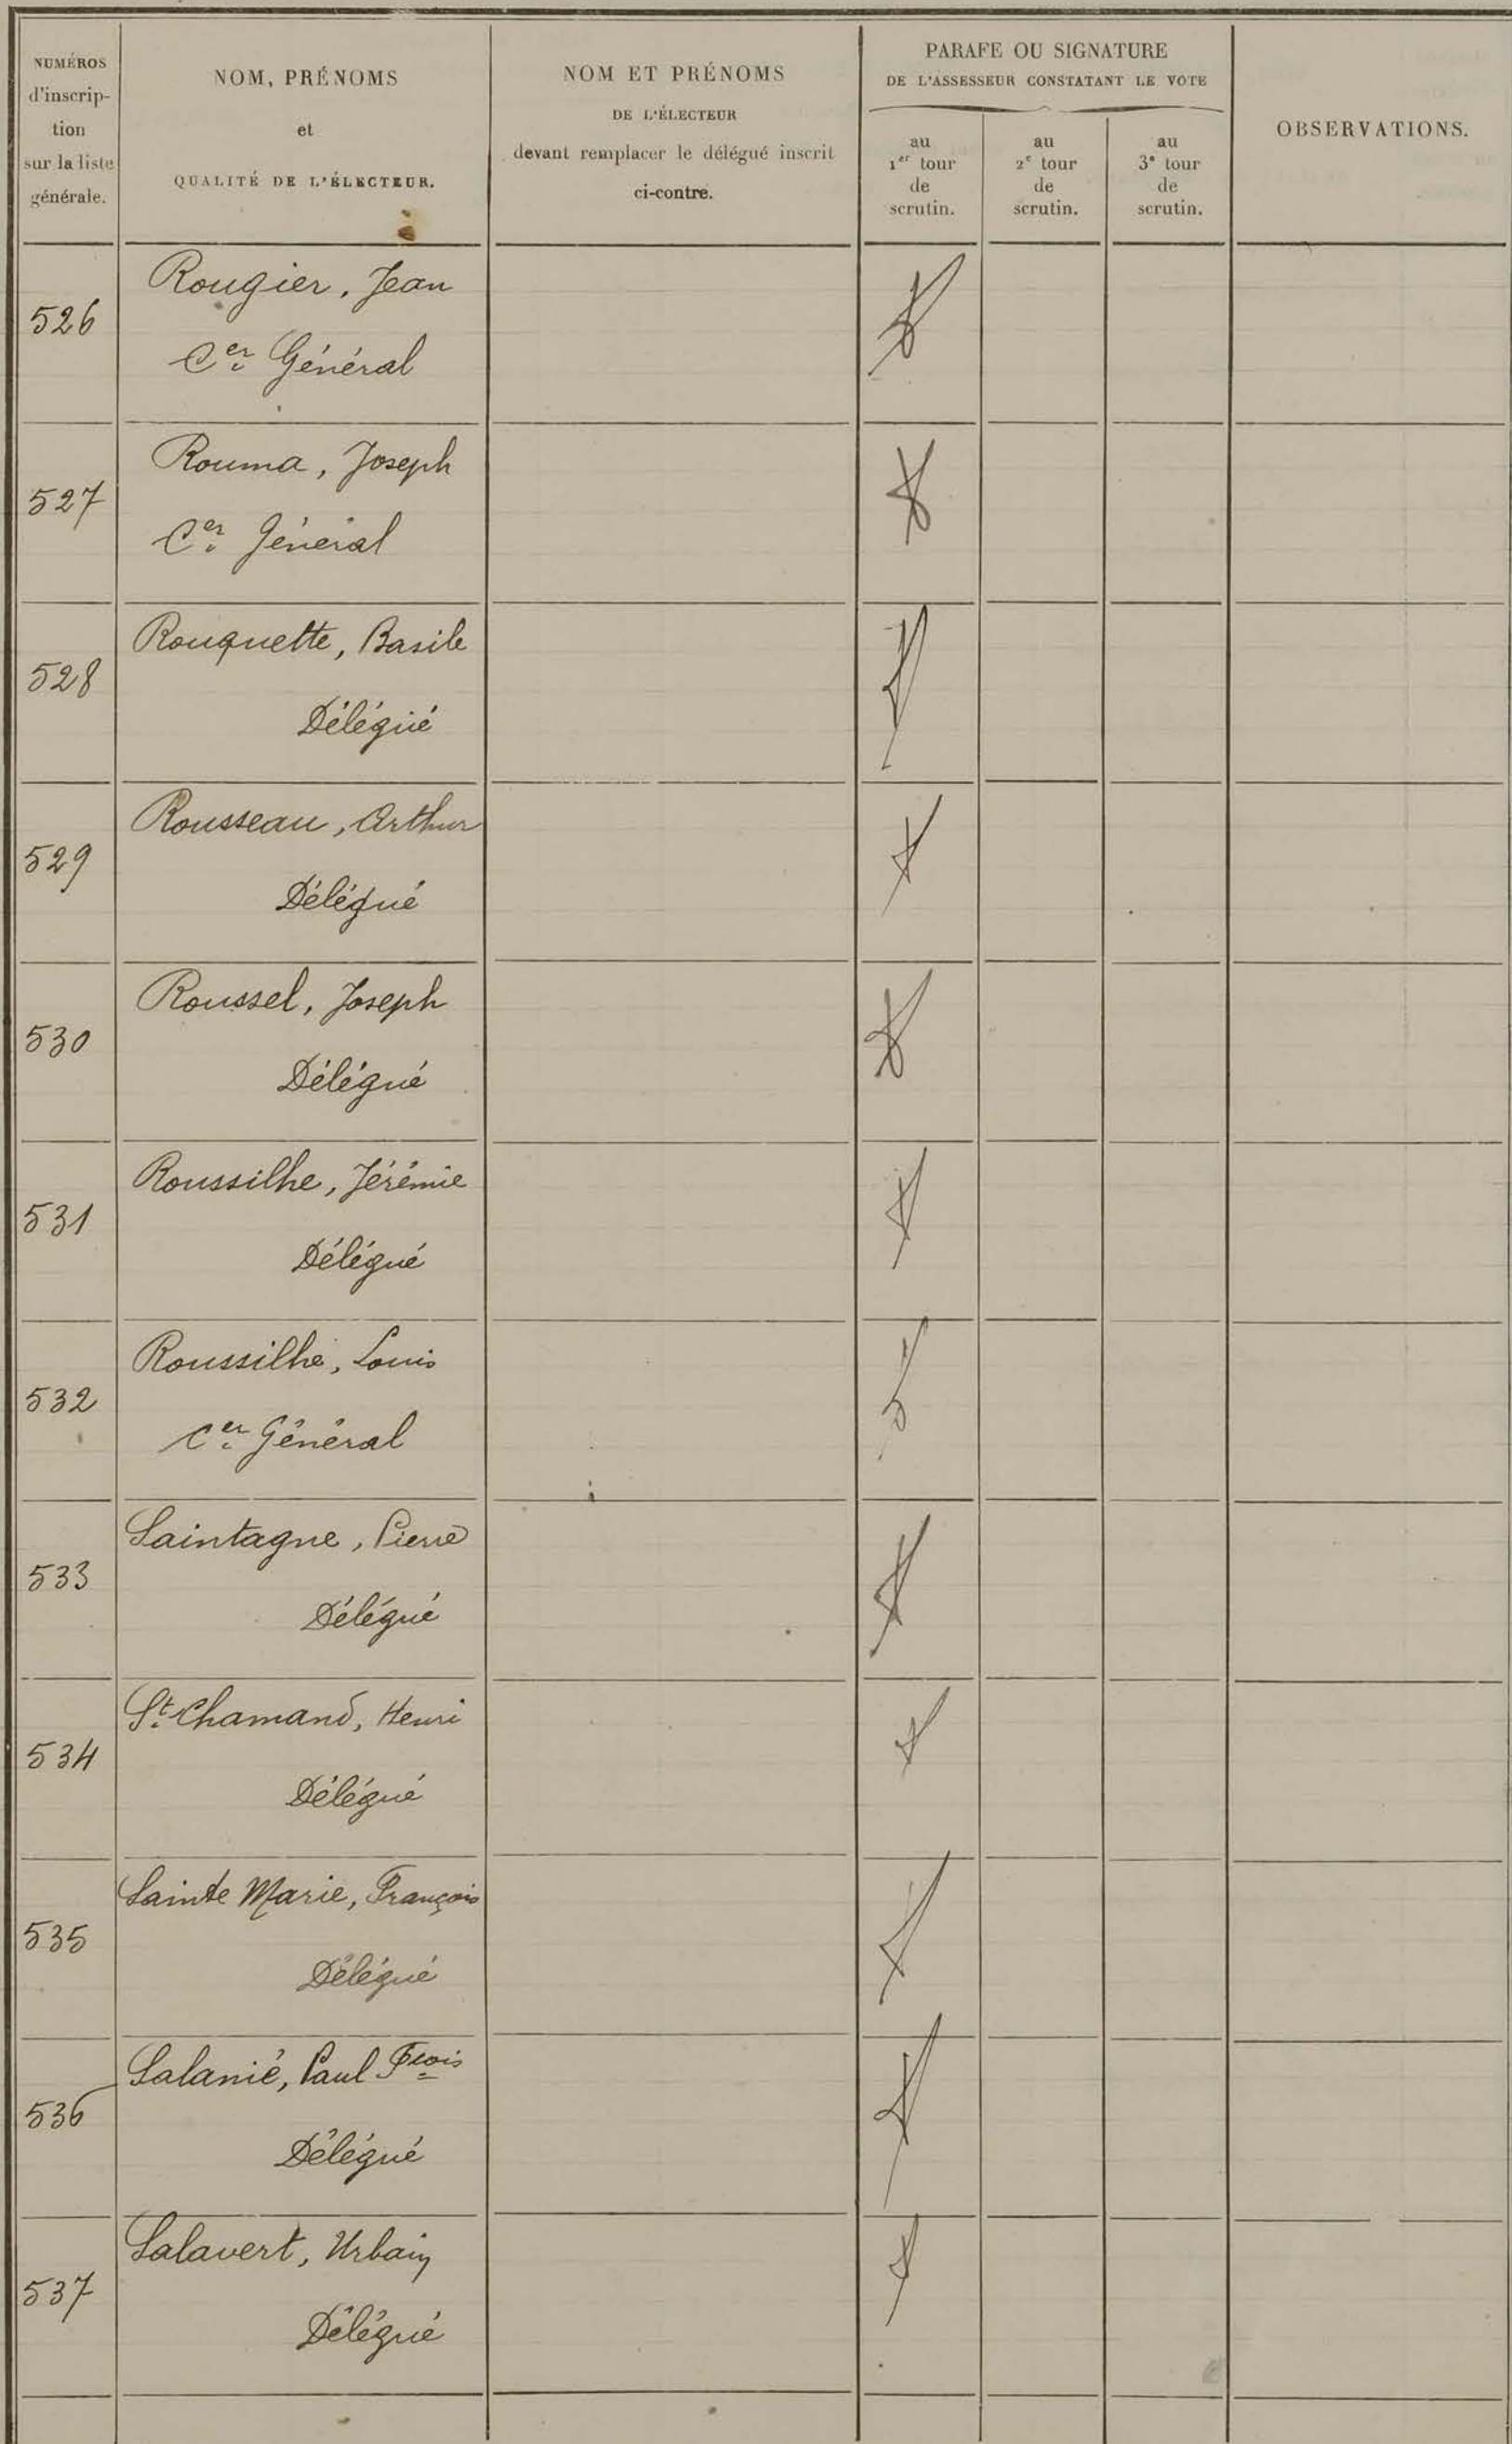 NUMÉROS
d'inscrip-
tion
sur la liste
générale.
NOM, PRÉNOMS
et
QUALITÉ DE L'ÉLECTEUR.
NOM ET PRÉNOMS
DE L'ÉLECTEUR
devant remplacer le délégué inscrit
ci-contre.
PARAFE OU SIGNATURE
DE L'ASSESSEUR CONSTATANT LE VOTE
au
1er tour
de
scrutin.
au
2e tour
de
scrutin.
au
3e tour
de
scrutin.
OBSERVATIONS.
526
Rougier, Jean
Cer Général
527
Rouma, Joseph
Cer Général
528
Rouquette, Basile
Délégué
529
Rousseau, Arthur
Délégué
530
Roussel, Joseph
Délégué
531
Roussilhe, Jérémie
Délégué
532
Roussilhe, Louis
Cer Général
533
Saintagne, Pierre
Délégué
534
St Chamand, Henri
Délégué
535
Sainte Marie, François
Délégué
536
Salanié, Paul Fçois
Délégué
537
Salavert, Urbain
Délégué